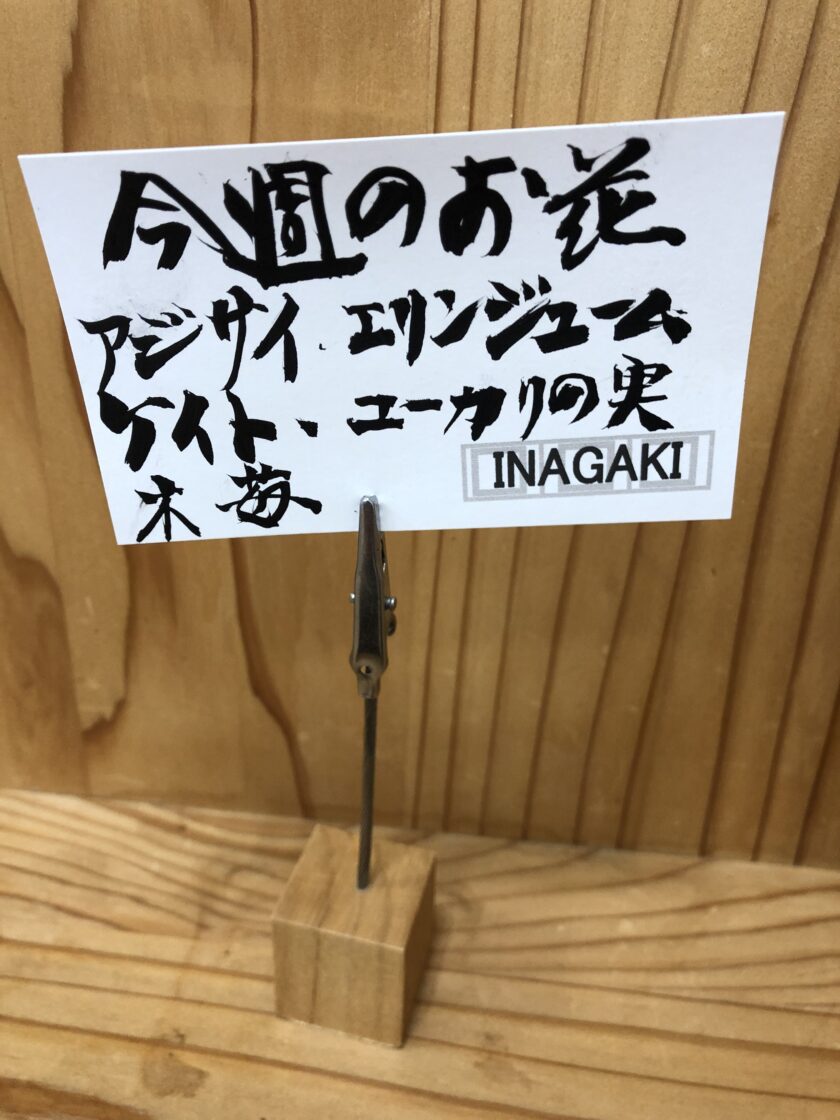 今週のお花
アジサイ・エリンジューム
ケイト・ユーカリの実
木苺
INAGAKI